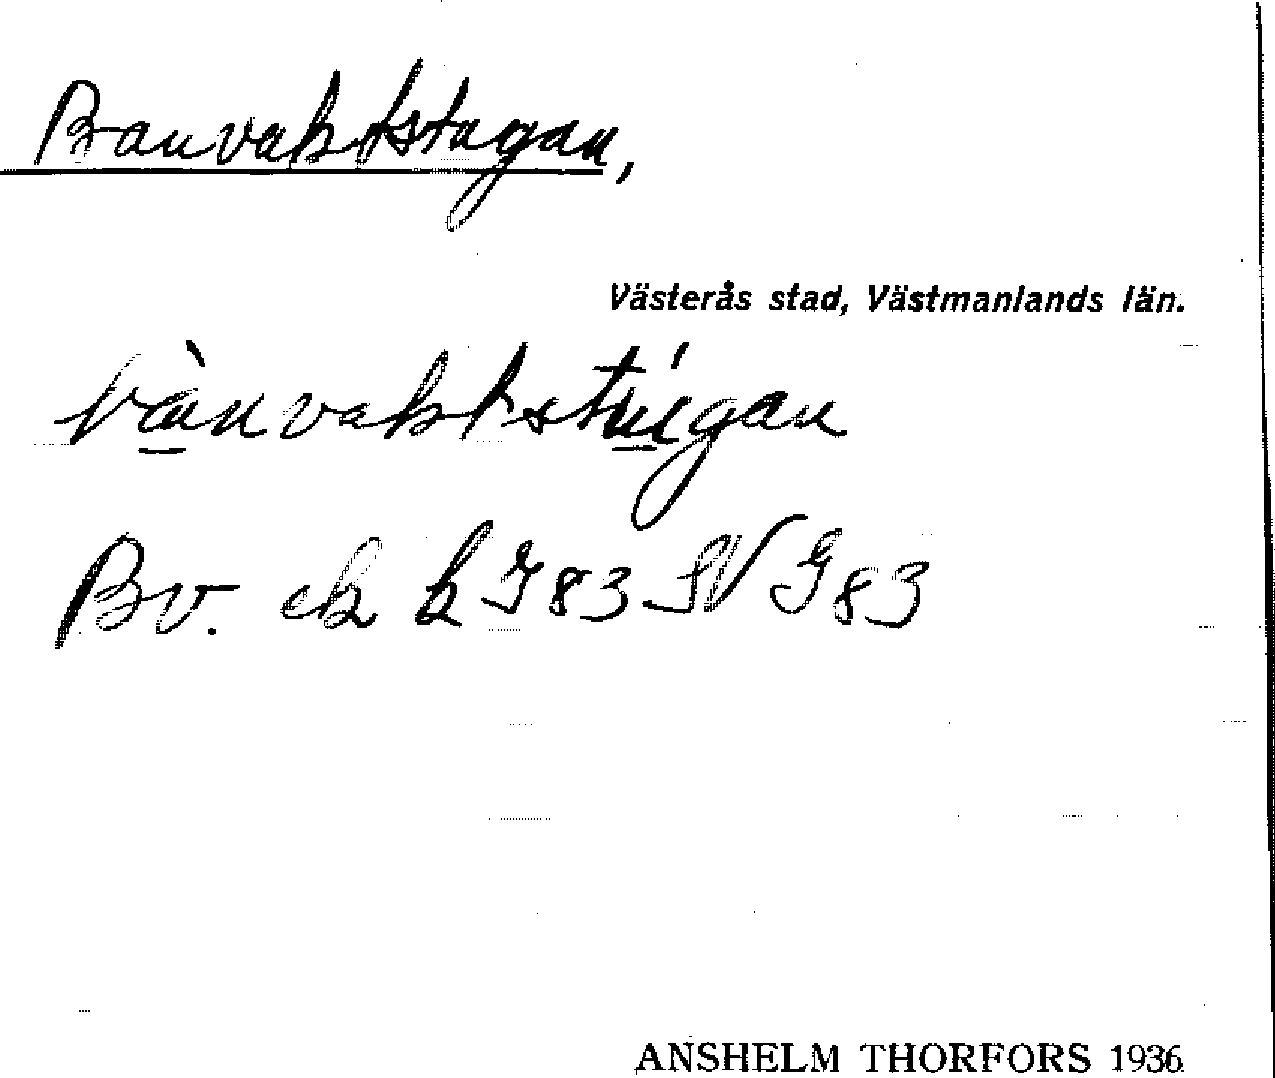 Banvaktstugan,
Västerås stad, Västmanlands län.
bànvaktstúgan
Bv. ek k J83 SV G83
ANSHELM THORFORS 1936